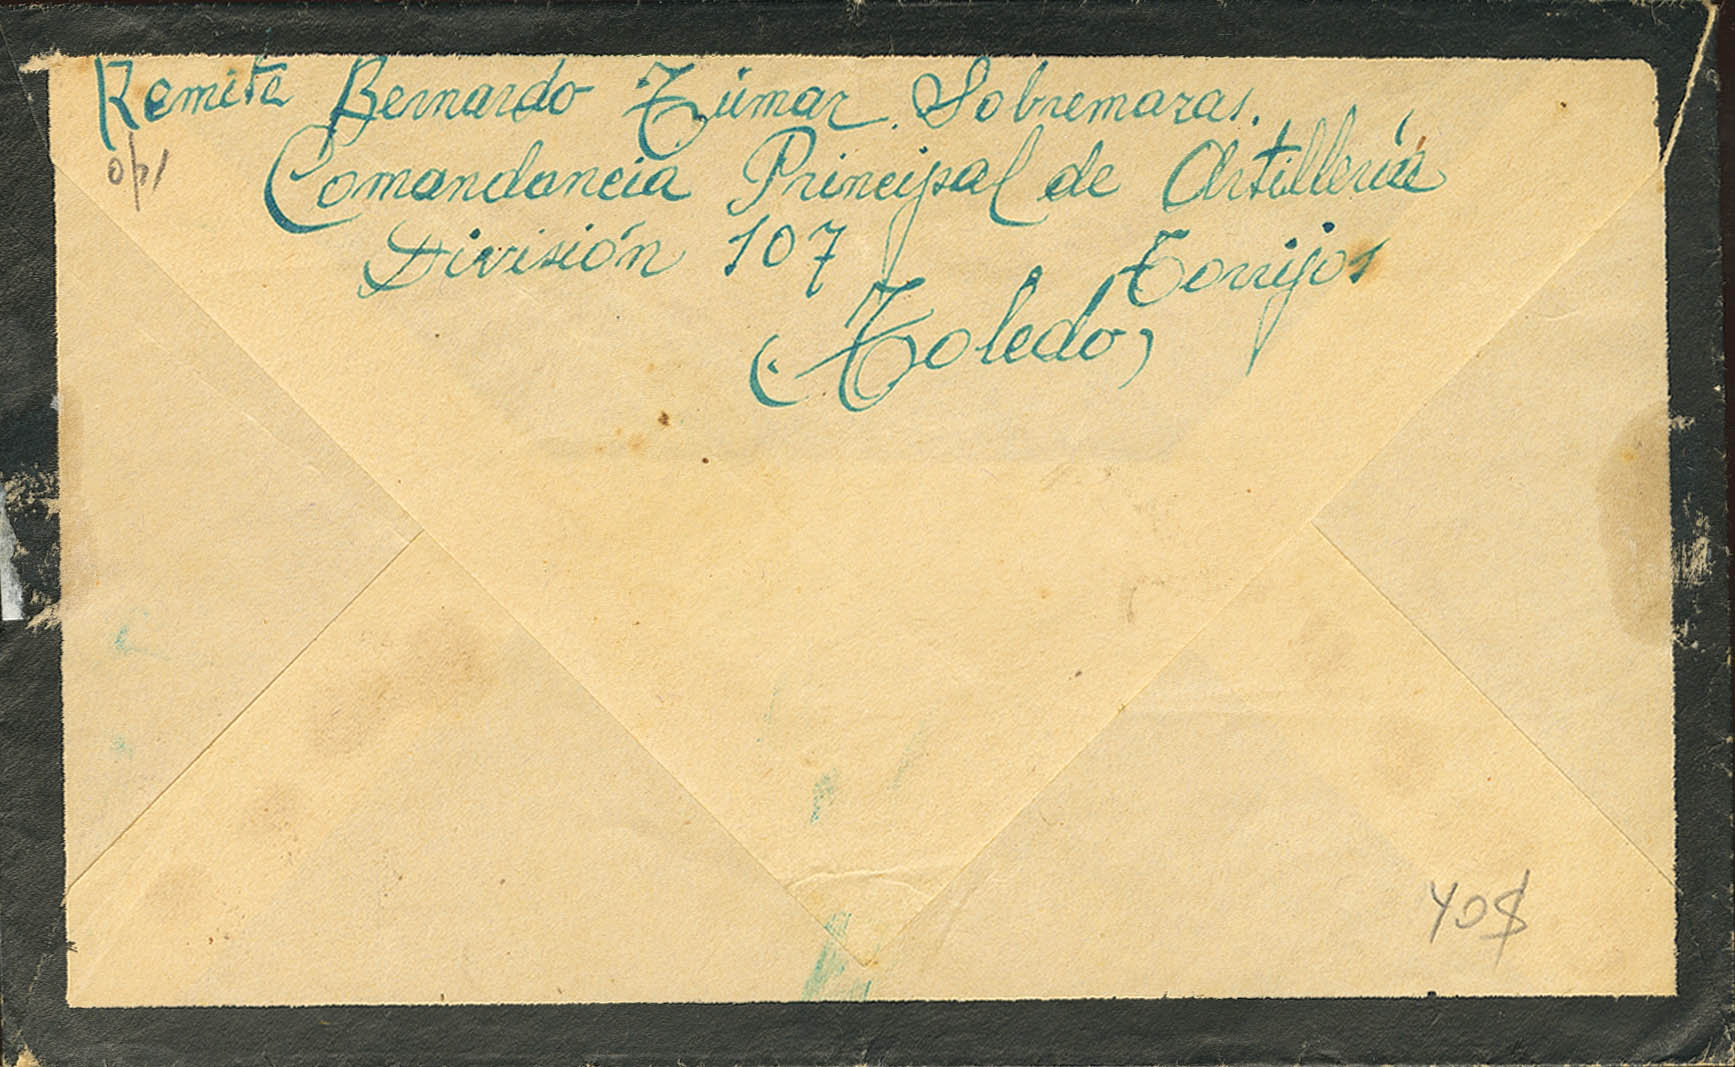 Remite Bernardo Túmar Sobremazas.
Comandancia Principal de Artillería
División 107 Torrijos
(Toledo)
40$